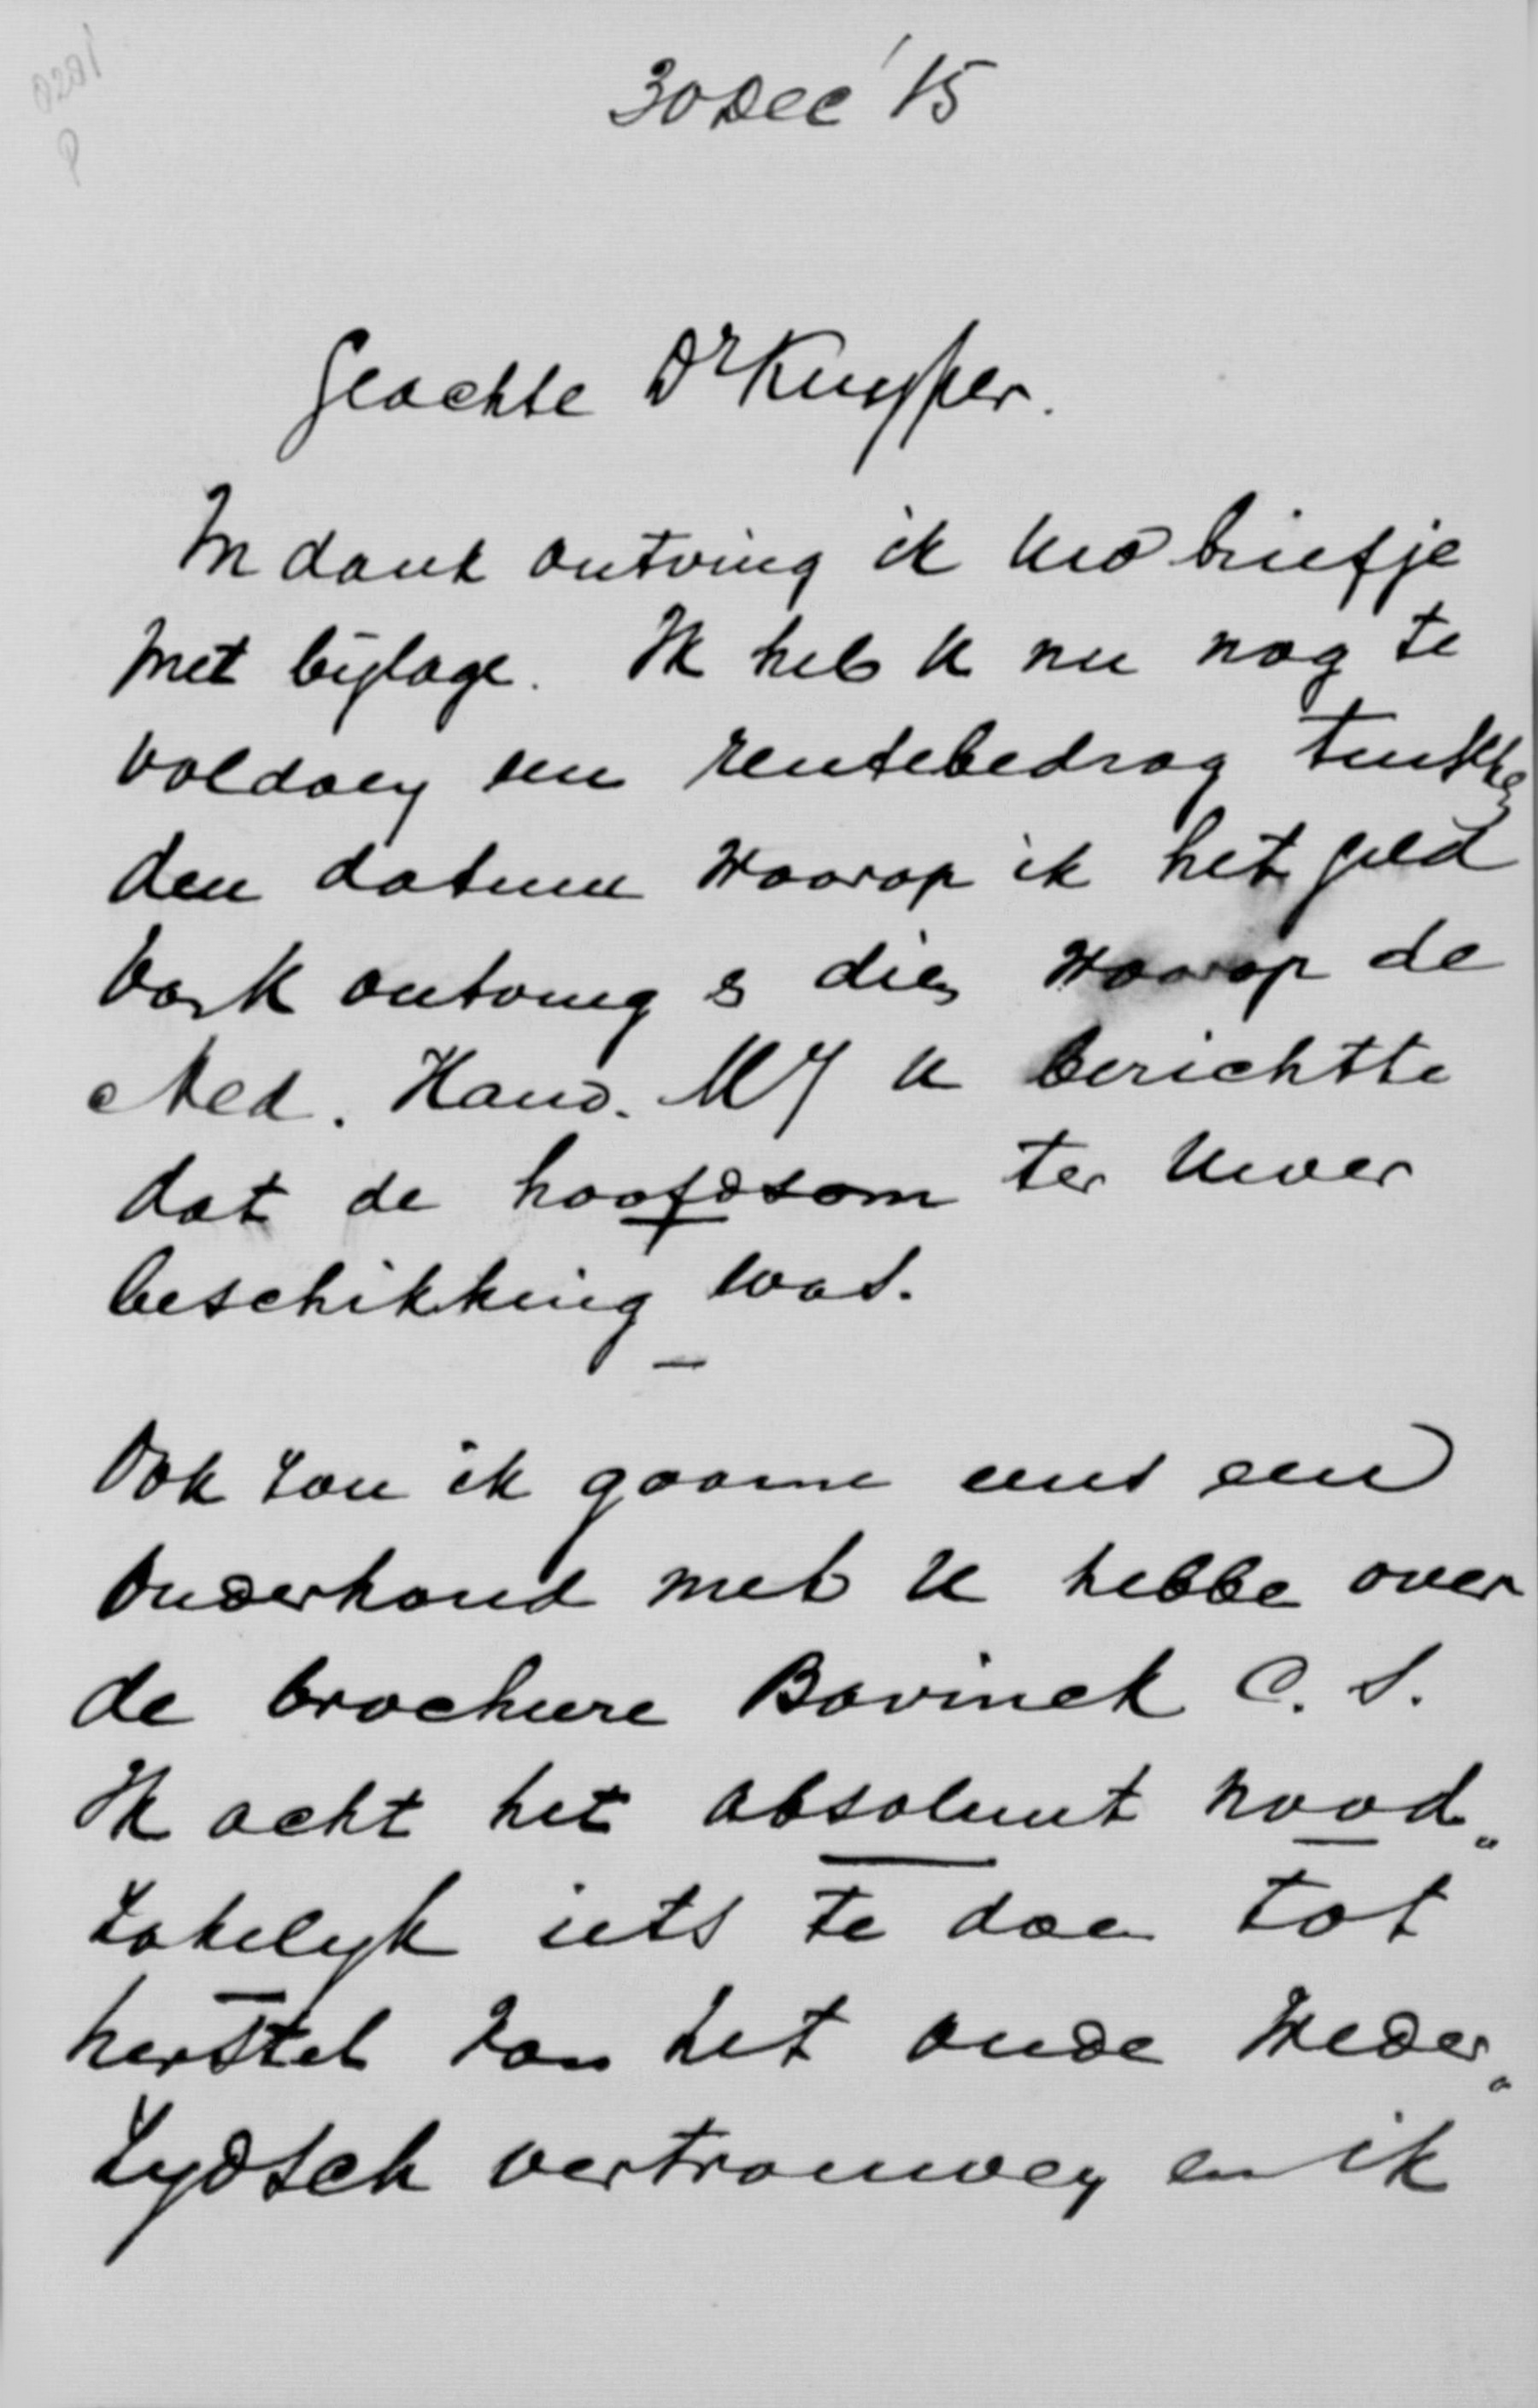 30 Dec '15
Geachte Dr Kuyper.
In dank ontving ik Uw briefje
met bijlage. Ik heb U nu nog te
voldoen een rentebedrag tusschen
den datum waarop ik het geld
ontving & dien waarop de
Ned. Hand. Mij U berichtte
dat de hoofdsom ter Uwer
beschikking was.
Ook zou ik gaarne eens een
onderhoud met U hebbe over
de brochure Bavinck C. S.
Ik acht het absoluut nood„
zakelijk iets te doen tot
herstel van het oude weder„
zydsch vertrouwen en ik